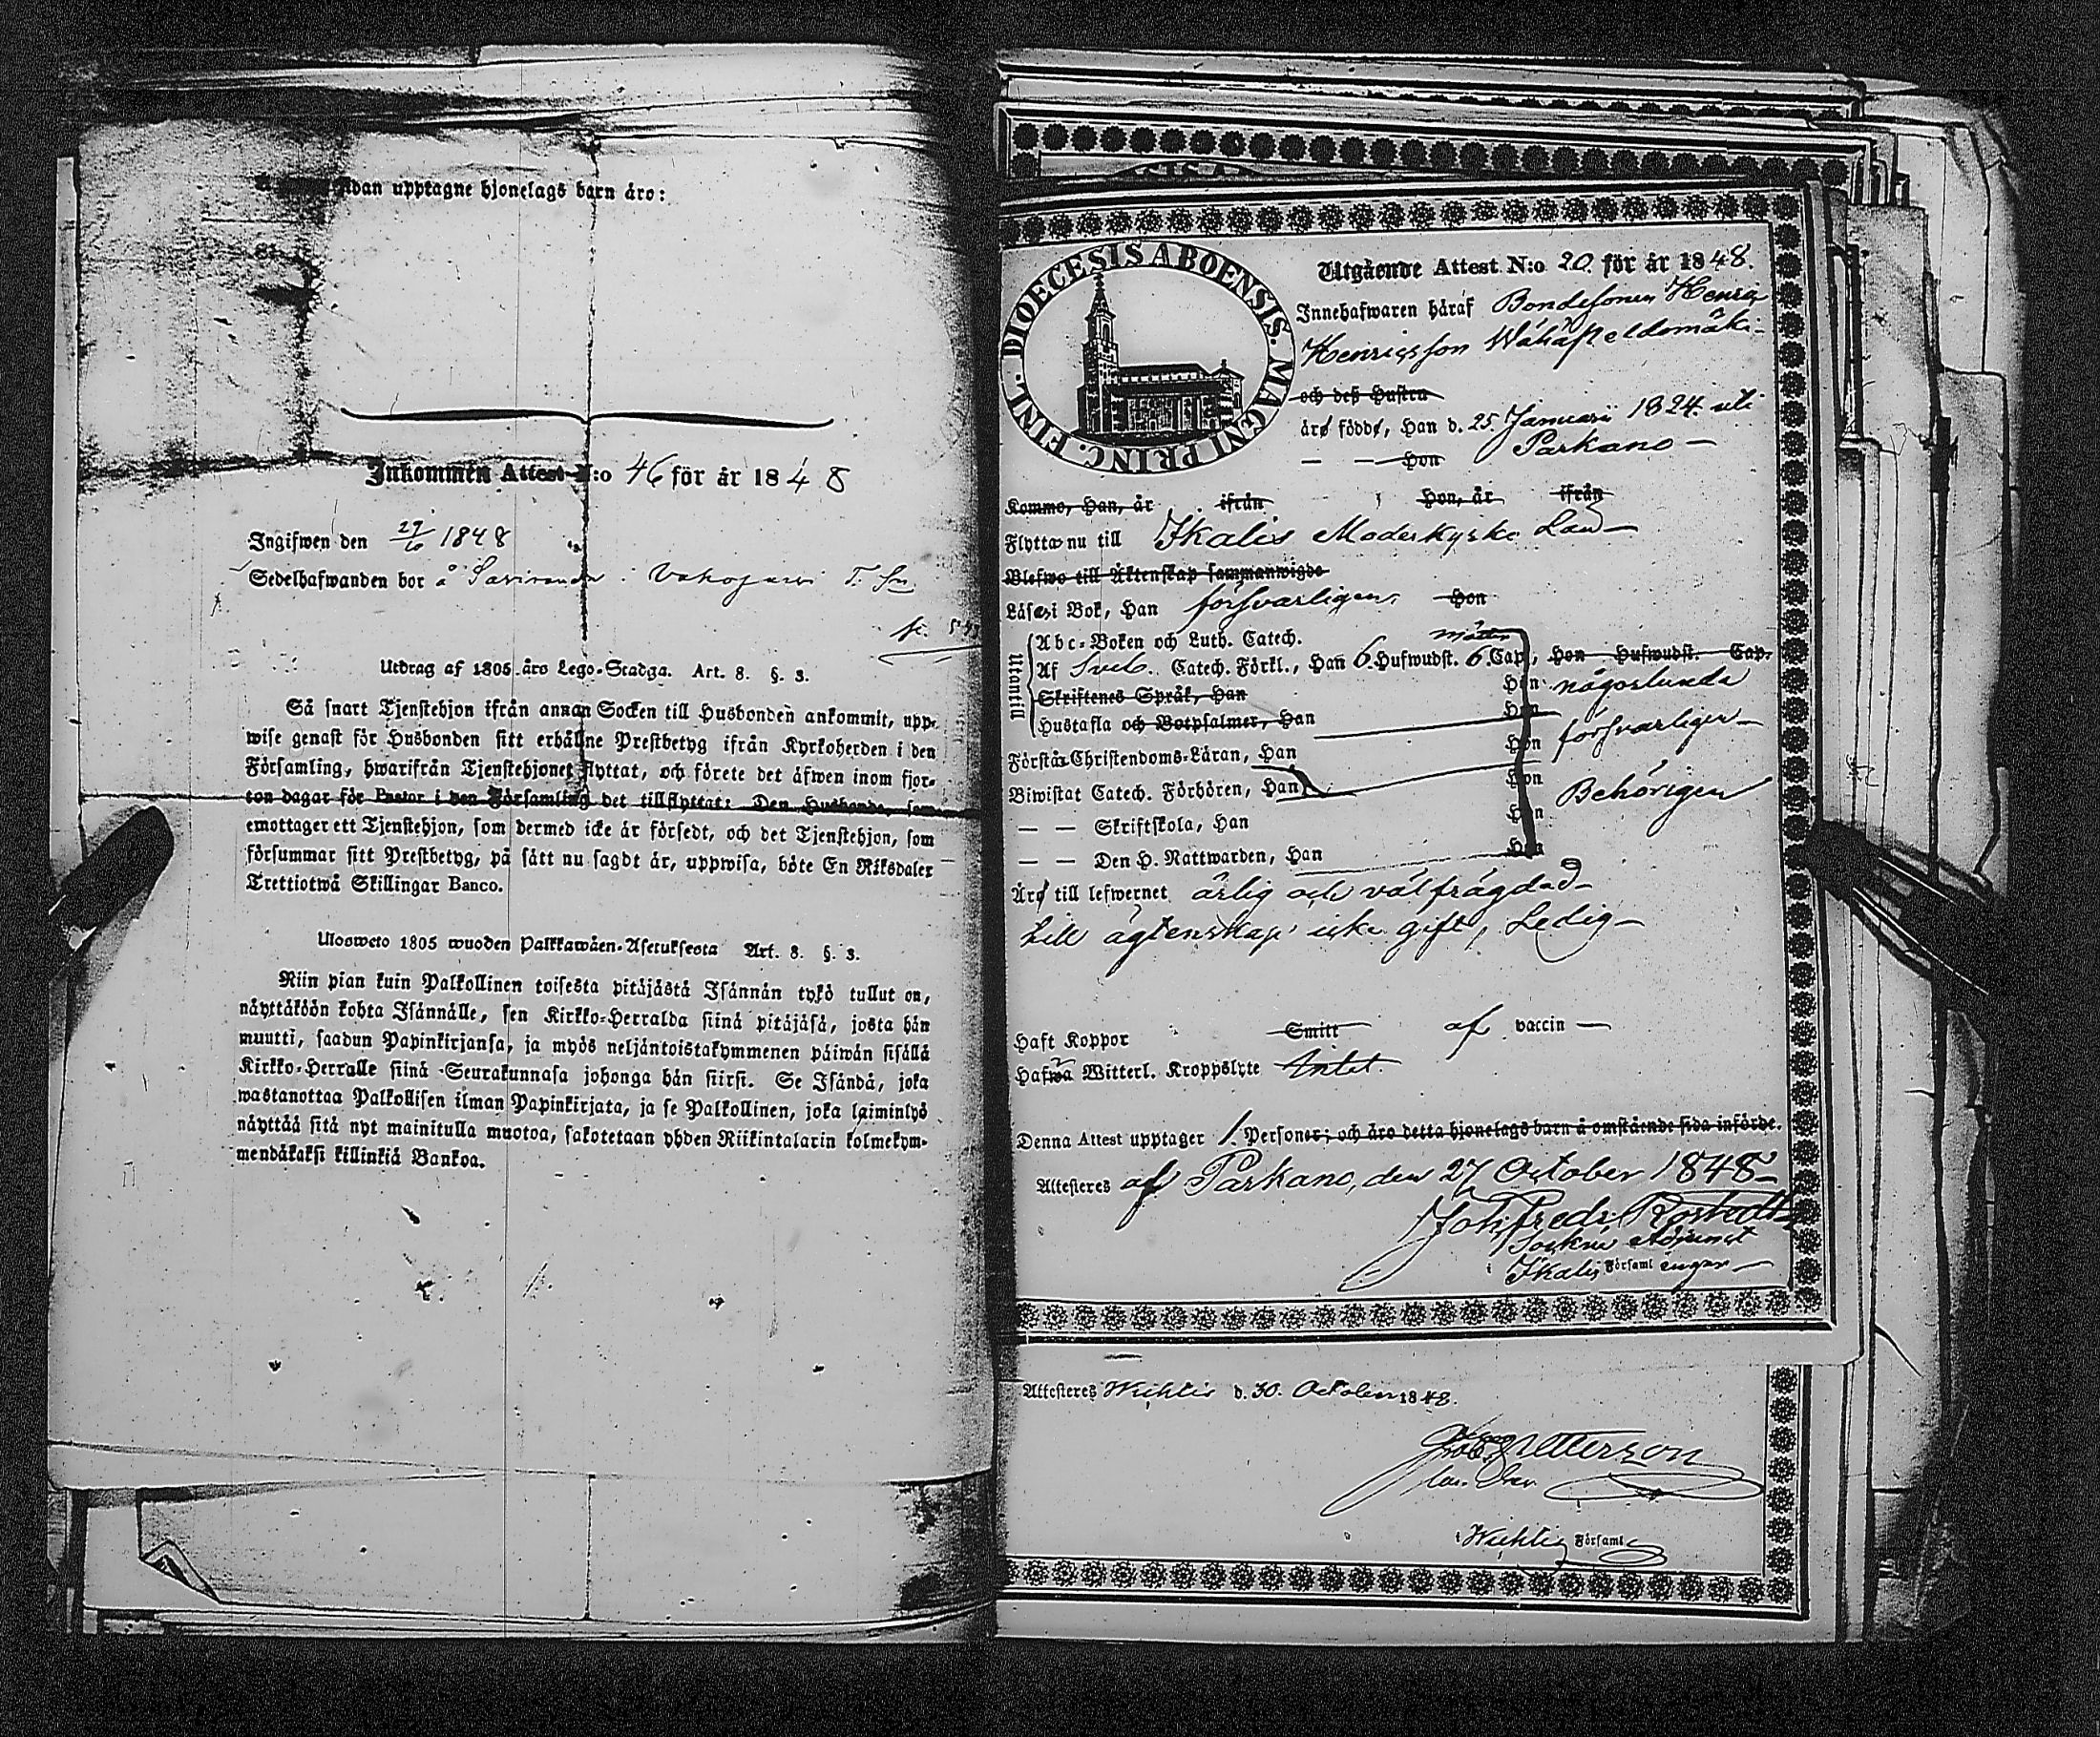 dan upptagne hjonelags barn äro:
Inkommen Attest N:o 46 för år 1848
Ingifwen den 29/10 1848
Sedelhafwanden bor å
Utdrag af 1805 års Lego-Stadga. Art. 8. §. 3.
Så snart Tjenstehjon ifrån annan Socken till Husbonden ankommit, upp-
wise genast för Husbonden sitt erhållne Prestbetyg ifrån Kyrkoherden i den
Församling, hwarifrån Tjenstehjonet flyttat, och förete det äfwen inom fjor-
ton dagar för Pastor i den Församling det tillflyttat: Den Husbonde, som
emottager ett Tjenstehjon, som dermed icke är försedt, och det Tjenstehjon, som
försummar sitt Prestbetyg, på sätt nu sagdt är, uppwisa, böte En Riksdaler
Trettiotwå Skillingar Banco.
Ulosweto 1805 wuoden Palkkawäen-Asetuksesta Art. 8. §. 3.
Niin pian kuin Palkollinen toisesta pitäjästä Isännän tykö tullut on,
näyttäköön kohta Isännälle, sen Kirkko-Herralda siinä pitäjäsä, josta hän
muutti, saadun Papinkirjansa, ja myös neljäntoistakymmenen päiwän sisällä
Kirkko-Herralle siinä Seurakunnasa johonga hän siirsi. Se Isändä, joka
wastanottaa Palkollisen ilman Papinkirjata, ja se Palkollinen, joka laiminlyö
näyttää sitä nyt mainitulla muotoa, sakotetaan yhden Riikintalarin kolmekym-
mendäkaksi killinkiä Bankoa.
DIOECESIS ABOENSIS. MAGNI PRINC. FINL.
Utgående Attest N:o 20. för år 1848.
Innehafwaren häraf Bondesonen Henric
Henricsson
och deß Hustru
äro födde, Han d. 25 Januarii 1824 uti
Parkano —
— — Hon
Komme, Han, år ifrån Hon, år ifrån
Flytta nu till Ikalis Moderkyrko Land —
Blefwo till Äktenskap sammanwigde
Läsa i Bok, Han försvarligen, Hon
Utantill
Abc-Boken och Luth. Catech.
Af Sveb. Catech. Förkl., Han 6 Hufwudst. 6 Cap., Hon Hufwudst. Cap.
Skriftenes Språk, Han Hon någorlunda
Hustafla och Botpsalmer, Han Hon
Förstå Christendoms-Läran, Han Hon försvarligen —
Biwistat Catech. Förhören, Han Hon
— — Skriftskola, Han Hon Behörigen
— — Den H. Nattwarden, Han Hon
Äro till lefwernet ärlig och välfrägdad —
till ägtenskap icke gift, Ledig —
Haft Koppor Smitt af vaccin —
Hafwa Witterl. Kroppslyte Intet.
Denna Attest upptager 1 Personer; och äro detta hjonelags barn å omstående sida införde.
Attesteres af Parkano, den 27 October 1848 —
Joh. Fredr. Rostedt
Sockne Adjunct
i Ikalis Församl ingar —
Attesteres Wichtis d. 30. October 1848.
i Wichtis Församl